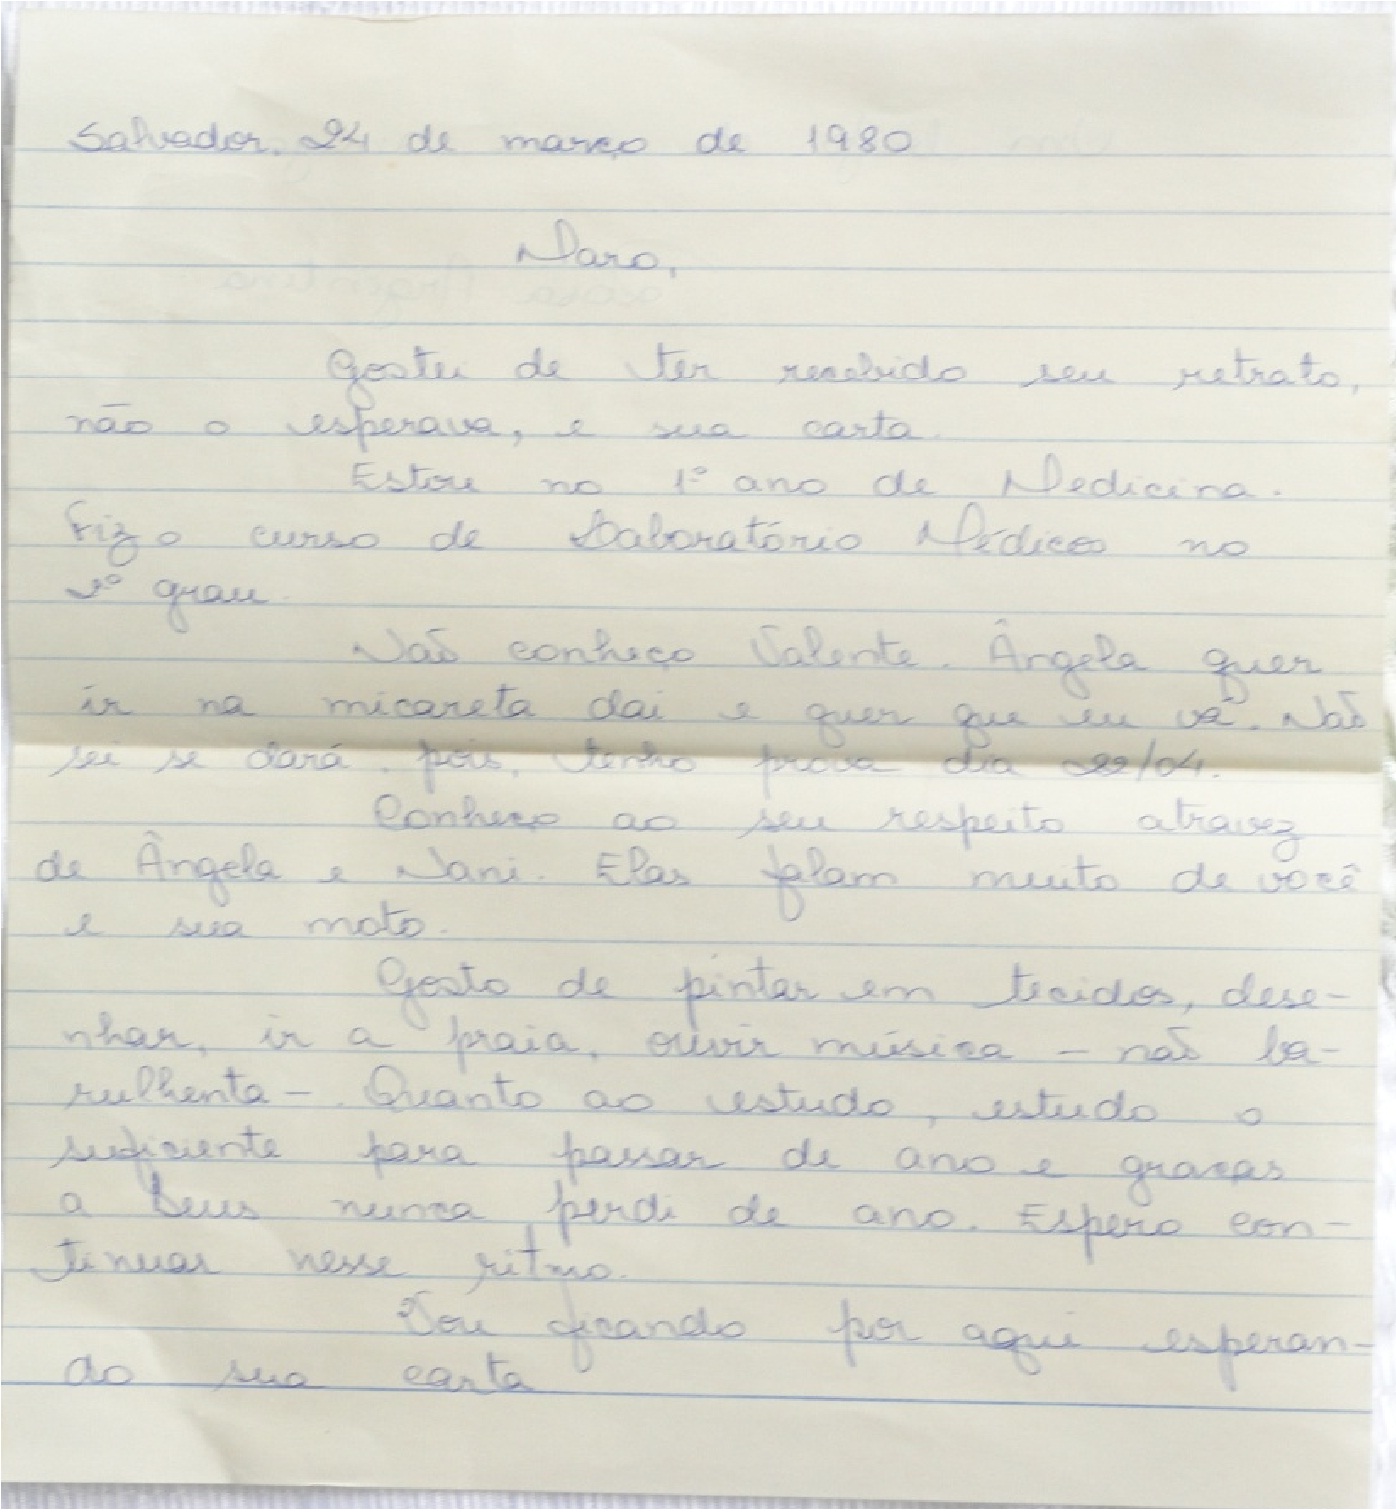 Salvador, 24 de março de 1980
Maro,
Gostei de ter recebido seu retrato,
não o esperava, e sua carta.
Estou no 1º ano de Medicina.
Fiz o curso de Laboratório Médicos no
2º grau.
Não conheço Valente. Ângela quer
ir na micareta dai e quer que eu vá. Não
sei se dará, pois, tenho prova dia 22/04.
Conheço ao seu respeito atravez
de Ângela e Nani. Elas falam muito de você
e sua moto.
Gosto de pintar em tecidos, dese-
nhar, ir a praia, ouvir música - não ba-
rulhenta -. Quanto ao estudo, estudo o
suficiente para passar de ano e graças
a Deus nunca perdi de ano. Espero con-
tinuar nesse ritmo.
Vou ficando por aqui esperan-
do sua carta